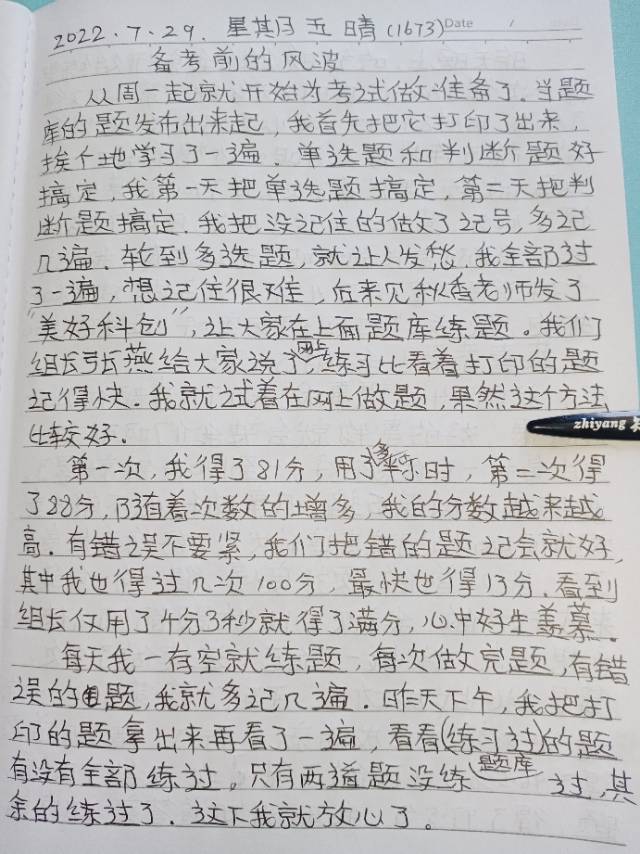 2022.7.29. 星期五 晴(1673) Date
备考前的风波
从周一起就开始为考试做准备了。当题
库的题发布出来起，我首先把它打印了出来，
挨个地学习了一遍。单选题和判断题好
搞定，我第一天把单选题搞定，第二天把判
断题搞定。我把没记住的做了记号，多记
几遍。轮到多选题，就让人发愁，我全部过
了一遍，想记住很难，后来见秋香老师发了
“美好科创”，让大家在上面题库练题。我们
组长张燕给大家说了网上练习比看着打印的题
记得快。我就试着在网上做题，果然这个方法
比较好。
zhiyang
第一次，我得了81分，用了多半小时，第二次得
了88分，随着次数的增多，我的分数越来越
高。有错误不要紧，我们把错的题记会就好，
其中我也得过几次100分，最快也得13分。看到
组长仅用了4分3秒就得了满分，心中好生羡慕。
每天我一有空就练题，每次做完题，有错
误的题，我就多记几遍。昨天下午，我把打
印的题拿出来再看了一遍，看看(练习过)的题
有没有全部练过。只有两道题没练题库过，其
余的练过了。这下我就放心了。